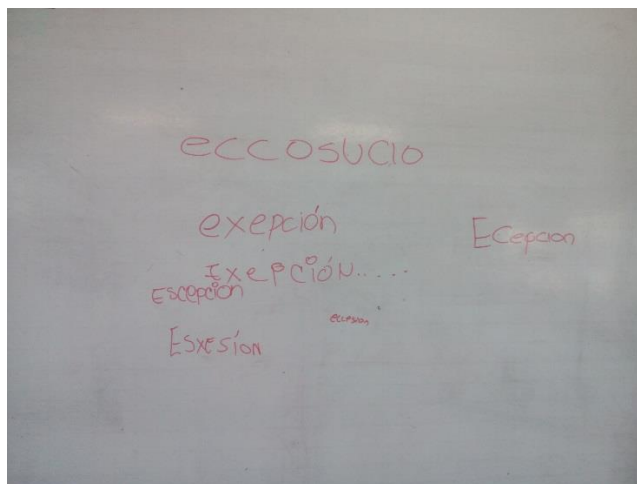 eccosucio
exepción
Ecepcion
Exepción.....
Escepcion
Esxesíon